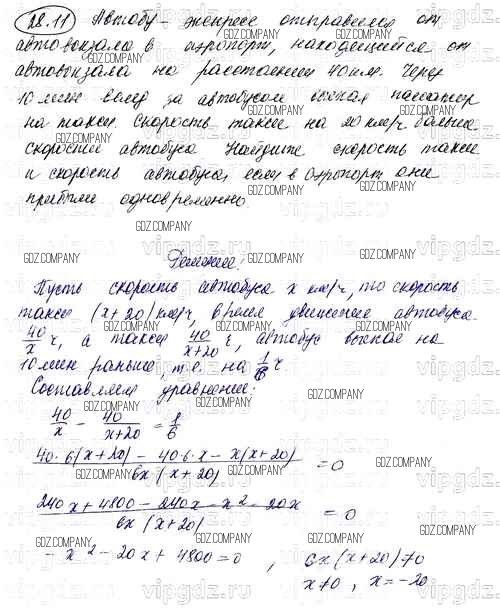 28.11 Автобус-экспресс отправился от
автовокзала в аэропорт, находящийся от
автовокзала на расстоянии 40 км. Через
10 мин вслед за автобусом выехал пассажир
на такси. Скорость такси на 20 км/ч больше
скорости автобуса Найдите скорость такси
и скорость автобуса, если в аэропорт они
прибыли одновременно.
Решение:
Пусть скорость автобуса x км/ч, то скорость
такси (x+20) км/ч, время движения автобуса
40/x ч, а такси 40/(x+20) ч, автобус выехал на
10 мин раньше, т.е. на 1/6 ч
Составляем уравнение:
40/x - 40/(x+20) = 1/6
(40·6(x+20) - 40·6·x - x(x+20))/(6x(x+20)) = 0
(240x + 4800 - 240x - x² - 20x)/(6x(x+20)) = 0
- x² - 20x + 4800 = 0 , 6x(x+20)≠0
x≠0, x = -20